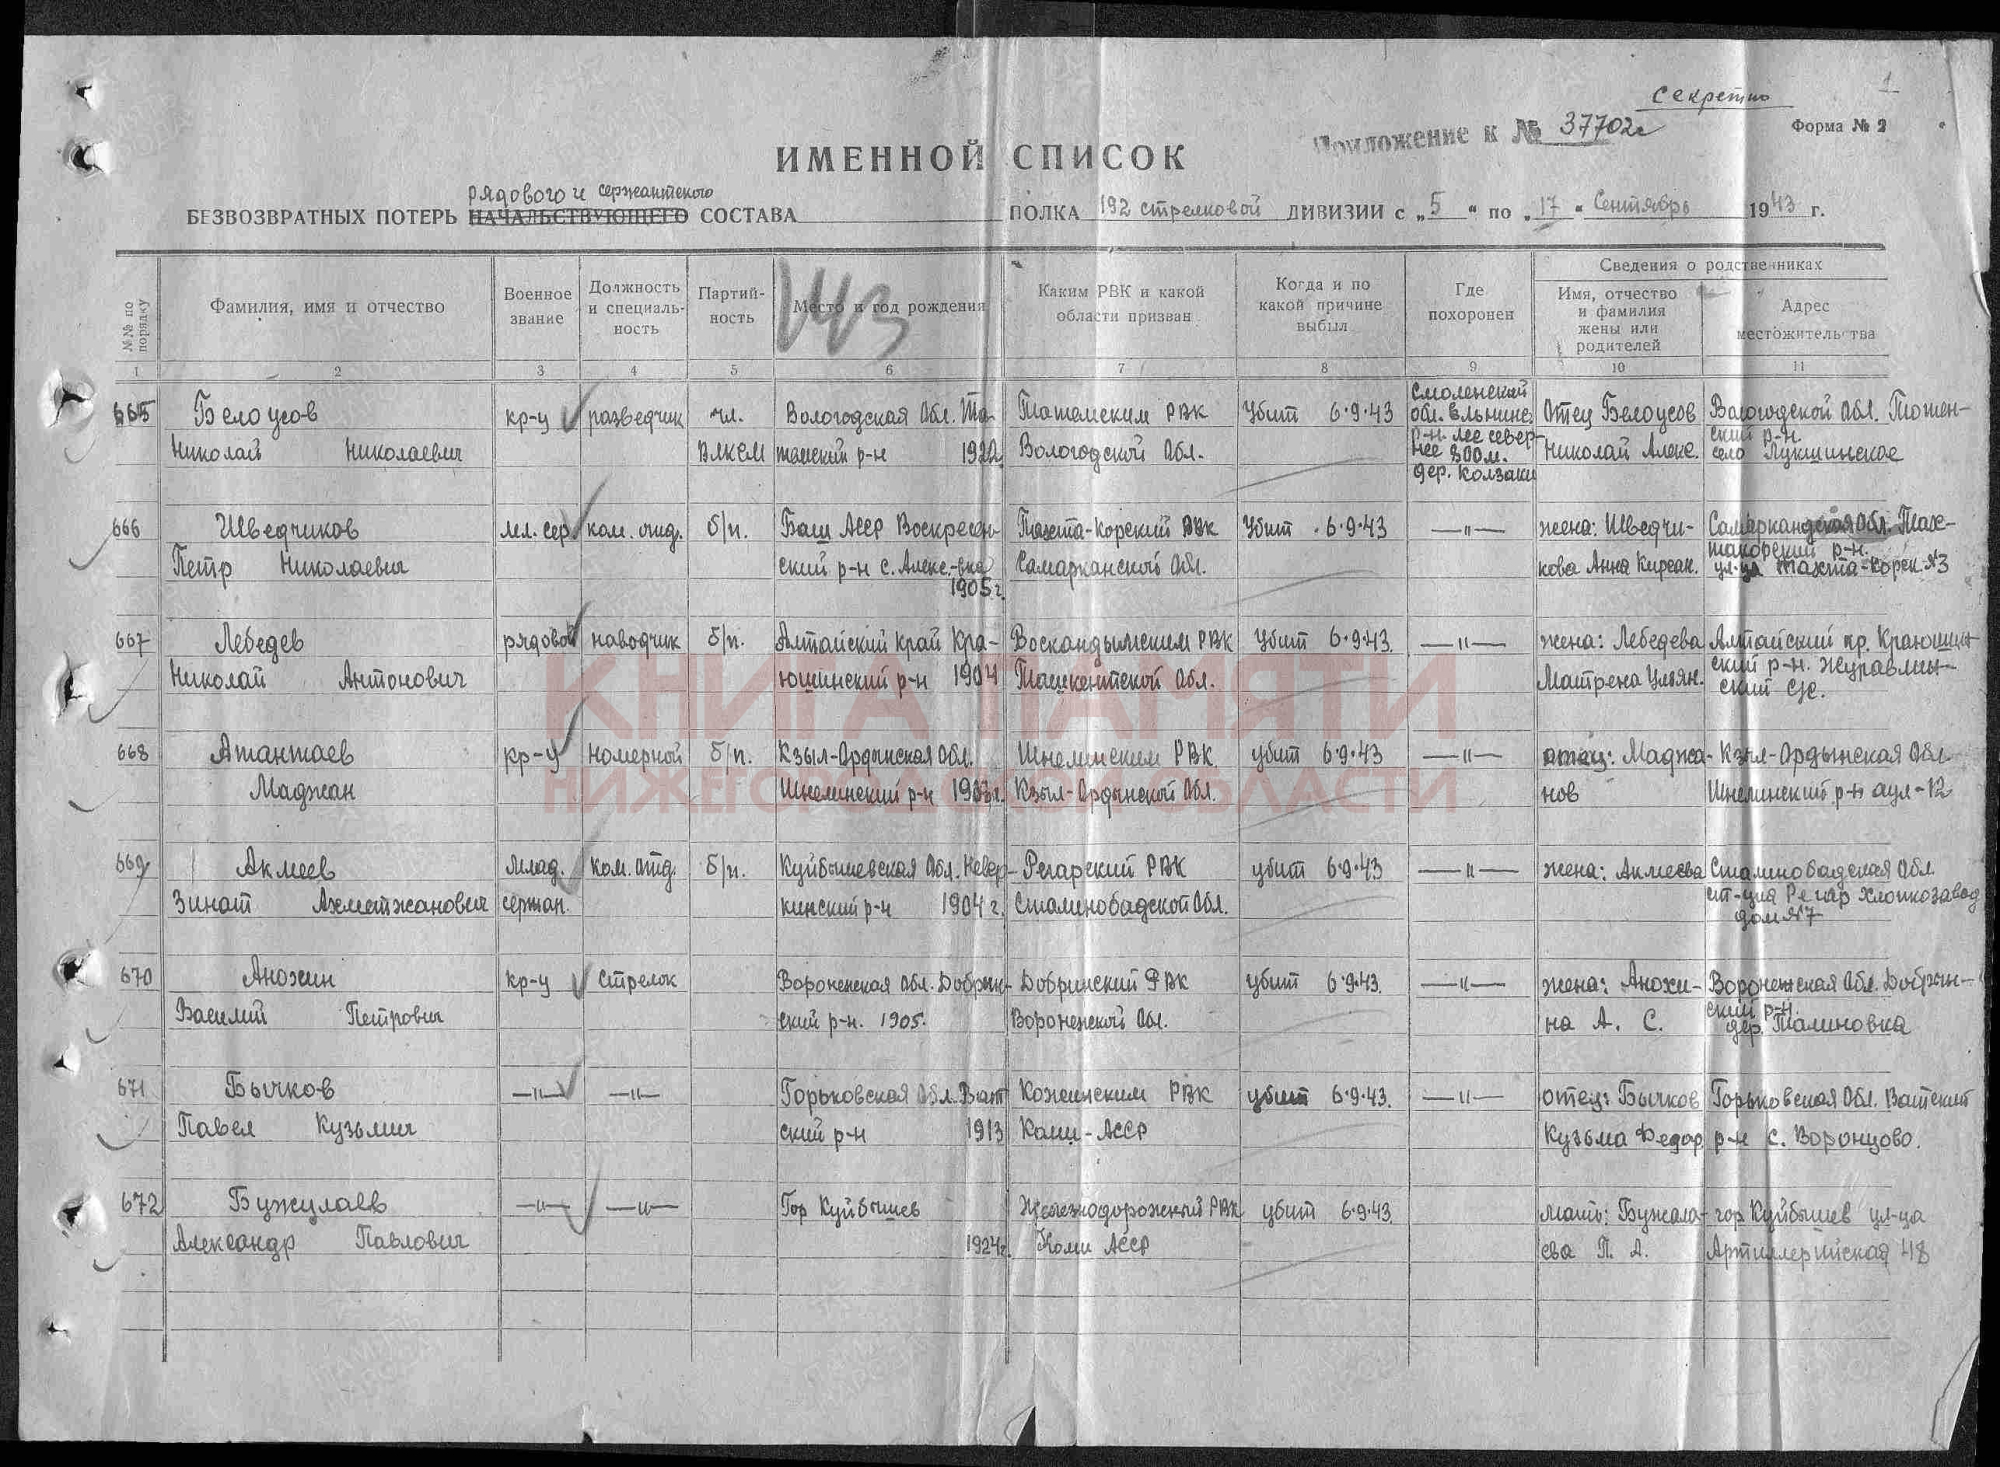 1
Секретно
Приложение к № 37702с
Форма № 2
ИМЕННОЙ СПИСОК
рядового и сержантского
БЕЗВОЗВРАТНЫХ ПОТЕРЬ НАЧАЛЬСТВУЮЩЕГО СОСТАВА ПОЛКА 192 стрелковой ДИВИЗИИ с „5“ по „17“ Сентябрь 1943 г.
№№ по порядку
Фамилия, имя и отчество
Военное звание
Должность и специальность
Партийность
Место и год рождения
Каким РВК и какой области призван
Когда и по какой причине выбыл
Где похоронен
Сведения о родственниках
Имя, отчество и фамилия жены или родителей
Адрес местожительства
1 2 3 4 5 6 7 8 9 10 11
665 Белоусов кр-ц разведчик чл. Вологодская Обл. То- Тотемским РВК Убит 6.9.43 Смоленский обл. Ельнинс. Отец Белоусов Вологодской Обл. Тотем-
Николай Николаевич ВЛКСМ темский р-н 1922 Вологодской Обл. р-н. лес север-нее 800м. Николай Алекс. ский р-н. село Лукшинское
дер. Колзаки
666 Шведчиков мл. сер. ком. отд. б/п. Баш АССР Воскресен- Тахта-Корский РВК Убит 6.9.43 —"— жена: Шведчи- Самаркандская Обл. Тах-
Петр Николаевич ский р-н с. Алекс.-вка Самарканской Обл. кова Анна Кирсан. такорский р-н.
1905г. ул-ца Тахта-Корск. №3
667 Лебедев рядовой наводчик б/п. Алтайский Край Кра- РВК Убит 6.9.43. —"— жена: Лебедева Алтайский кр. Краюшин-
Николай Антонович юшинский р-н 1904 Ташкентской Обл. Матрена Ульян. ский р-н. Журавлин-
ский с/с.
668 Атантаев кр-ц номерной б/п. Кзыл-Ордынская Обл. РВК убит 6.9.43 —"— отец: Маджа- Кзыл-Ордынская Обл.
Маджан р-н г. Кзыл-Ордынской Обл. нов р-н аул-12
669 Акмеев млад. ком. отд. б/п. Куйбышевская Обл. Невер- Регарский РВК убит 6.9.43 —"— жена: Акмеева Сталинобадская Обл.
Зинат Ахметжанович сержан. кинский р-н 1904 г. Сталинобадской Обл. ст-ция Регар хлопкозавод
дом №7
670 Анохин кр-ц стрелок Воронежская Обл. Добрин- Добринский РВК убит 6.9.43. —"— жена: Анохи- Воронежская Обл. Добрин-
Василий Петрович ский р-н. 1905. Воронежской Обл. на А. С. ский р-н.
дер. Талиновка
671 Бычков —"— —"— Горьковская Обл. Ват РВК убит 6.9.43. —"— отец: Бычков Горьковская Обл. Ватский
Павел Кузьмич ский р-н 1913 Коми-АССР Кузьма Федор. р-н с. Воронцово.
672 Бужулаев —"— —"— Гор Куйбышев Железнодорожный РВК убит 6.9.43. мать: Бужала- гор Куйбышев ул-ца
Александр Павлович 1924г. Коми АССР ева П. А. Артиллерийская 48
КНИГА ПАМЯТИ
НИЖЕГОРОДСКОЙ ОБЛАСТИ